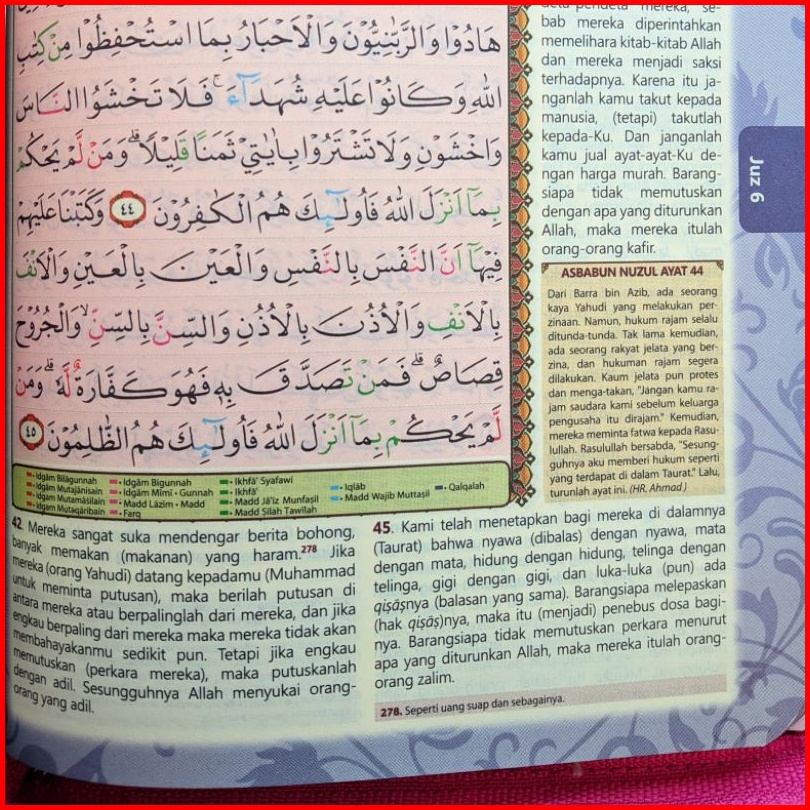 هَادُوْا وَالرَّبّٰنِيُّوْنَ وَالْاَحْبَارُ بِمَا اسْتُحْفِظُوْا مِنْ كِتٰبِ
اللّٰهِ وَكَانُوْا عَلَيْهِ شُهَدَآءَ ۚ فَلَا تَخْشَوُا النَّاسَ
وَاخْشَوْنِ وَلَا تَشْتَرُوْا بِاٰيٰتِيْ ثَمَنًا قَلِيْلًا ۗ وَمَنْ لَّمْ يَحْكُمْ
بِمَآ اَنْزَلَ اللّٰهُ فَاُولٰۤىِٕكَ هُمُ الْكٰفِرُوْنَ ٤٤ وَكَتَبْنَا عَلَيْهِمْ
فِيْهَآ اَنَّ النَّفْسَ بِالنَّفْسِ وَالْعَيْنَ بِالْعَيْنِ وَالْاَنْفَ
بِالْاَنْفِ وَالْاُذُنَ بِالْاُذُنِ وَالسِّنَّ بِالسِّنِّ ۙ وَالْجُرُوْحَ
قِصَاصٌ ۗ فَمَنْ تَصَدَّقَ بِهٖ فَهُوَ كَفَّارَةٌ لَّهٗ ۗ وَمَنْ
لَّمْ يَحْكُمْ بِمَآ اَنْزَلَ اللّٰهُ فَاُولٰۤىِٕكَ هُمُ الظّٰلِمُوْنَ ٤٥
• Idgām Bilāgunnah • Idgām Bigunnah • Ikhfā' Syafawi
• Idgām Mutajānisain • Idgām Mimī • Gunnah • Ikhfā' • Iqlāb • Qalqalah
• Idgām Mutamāsilain • Madd Lāzim • Madd • Madd Jā'iz Munfaṣil • Madd Wajib Muttaṣil
• Idgām Mutaqāribain • Farq • Madd Ṣilah Ṭawīlah
42. Mereka sangat suka mendengar berita bohong,
banyak memakan (makanan) yang haram.278 Jika
mereka (orang Yahudi) datang kepadamu (Muhammad
untuk meminta putusan), maka berilah putusan di
antara mereka atau berpalinglah dari mereka, dan jika
engkau berpaling dari mereka maka mereka tidak akan
membahayakanmu sedikit pun. Tetapi jika engkau
memutuskan (perkara mereka), maka putuskanlah
dengan adil. Sesungguhnya Allah menyukai orang-
orang yang adil.
deta-pendeta mereka, se-
bab mereka diperintahkan
memelihara kitab-kitab Allah
dan mereka menjadi saksi
terhadapnya. Karena itu ja-
nganlah kamu takut kepada
manusia, (tetapi) takutlah
kepada-Ku. Dan janganlah
kamu jual ayat-ayat-Ku de-
ngan harga murah. Barang-
siapa tidak memutuskan
dengan apa yang diturunkan
Allah, maka mereka itulah
orang-orang kafir.
ASBABUN NUZUL AYAT 44
Dari Barra bin Azib, ada seorang
kaya Yahudi yang melakukan per-
zinaan. Namun, hukum rajam selalu
ditunda-tunda. Tak lama kemudian,
ada seorang rakyat jelata yang ber-
zina, dan hukuman rajam segera
dilakukan. Kaum jelata pun protes
dan menga-takan, "Jangan kamu ra-
jam saudara kami sebelum keluarga
pengusaha itu dirajam." Kemudian,
mereka meminta fatwa kepada Rasu-
lullah. Rasulullah bersabda, "Sesung-
guhnya aku memberi hukum seperti
yang terdapat di dalam Taurat." Lalu,
turunlah ayat ini. (HR. Ahmad)
45. Kami telah menetapkan bagi mereka di dalamnya
(Taurat) bahwa nyawa (dibalas) dengan nyawa, mata
dengan mata, hidung dengan hidung, telinga dengan
telinga, gigi dengan gigi, dan luka-luka (pun) ada
qiṣāṣnya (balasan yang sama). Barangsiapa melepaskan
(hak qiṣāṣ)nya, maka itu (menjadi) penebus dosa bagi-
nya. Barangsiapa tidak memutuskan perkara menurut
apa yang diturunkan Allah, maka mereka itulah orang-
orang zalim.
278. Seperti uang suap dan sebagainya.
Juz 6